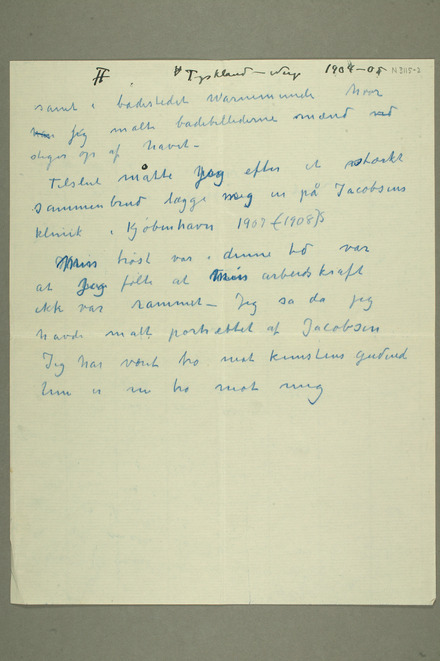 II Tyskland – Weg 1907–08 N 3115-2
samt i badestedet Warnemünde hvor
jeg malte badebillederne mænd ved
stiger op af havet –
Tilslut måtte jeg efter et stærkt
sammenbrud lægge meg in på Jacobsens
klinik i Kjøbenhavn 1907 (1908)
Min trøst var i denne tid var
at jeg følte at min arbeidskraft
ikke var rammet – Jeg så da jeg
havde malt portrættet af Jacobsen
Jeg har været tro mot kunstens gudind
Hun er nu tro mot meg